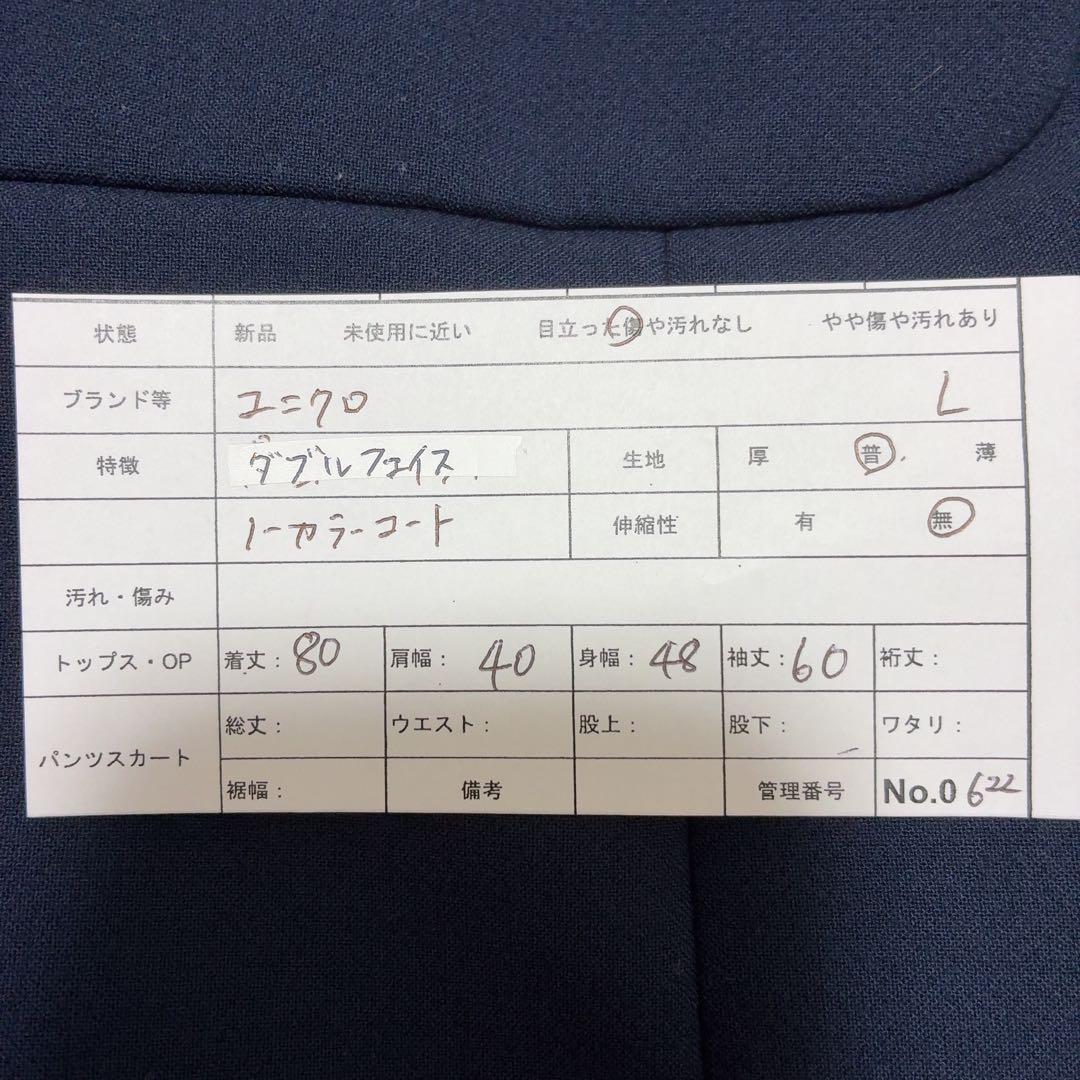 状態 新品 未使用に近い 目立った傷や汚れなし やや傷や汚れあり
ブランド等 ユニクロ L
特徴 ダブルフェイス 生地 厚 普 薄
ノーカラーコート 伸縮性 有 無
汚れ・傷み
トップス・OP 着丈:80 肩幅:40 身幅:48 袖丈:60 裄丈:
パンツスカート 総丈: ウエスト: 股上: 股下: ワタリ:
裾幅: 備考 管理番号 No.0622